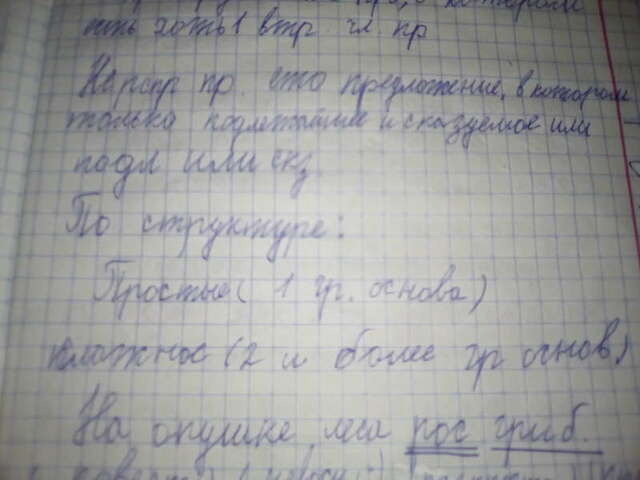 в котором
есть хоть 1 втр. чл. пр
Нерспр пр. это предложение, в котором
только подлежайшее и сказуемое или
подл или скз.
По структуре:
Простые (1 гр. основа)
сложное (2 и более гр основ)
На опушке леса рос гриб.